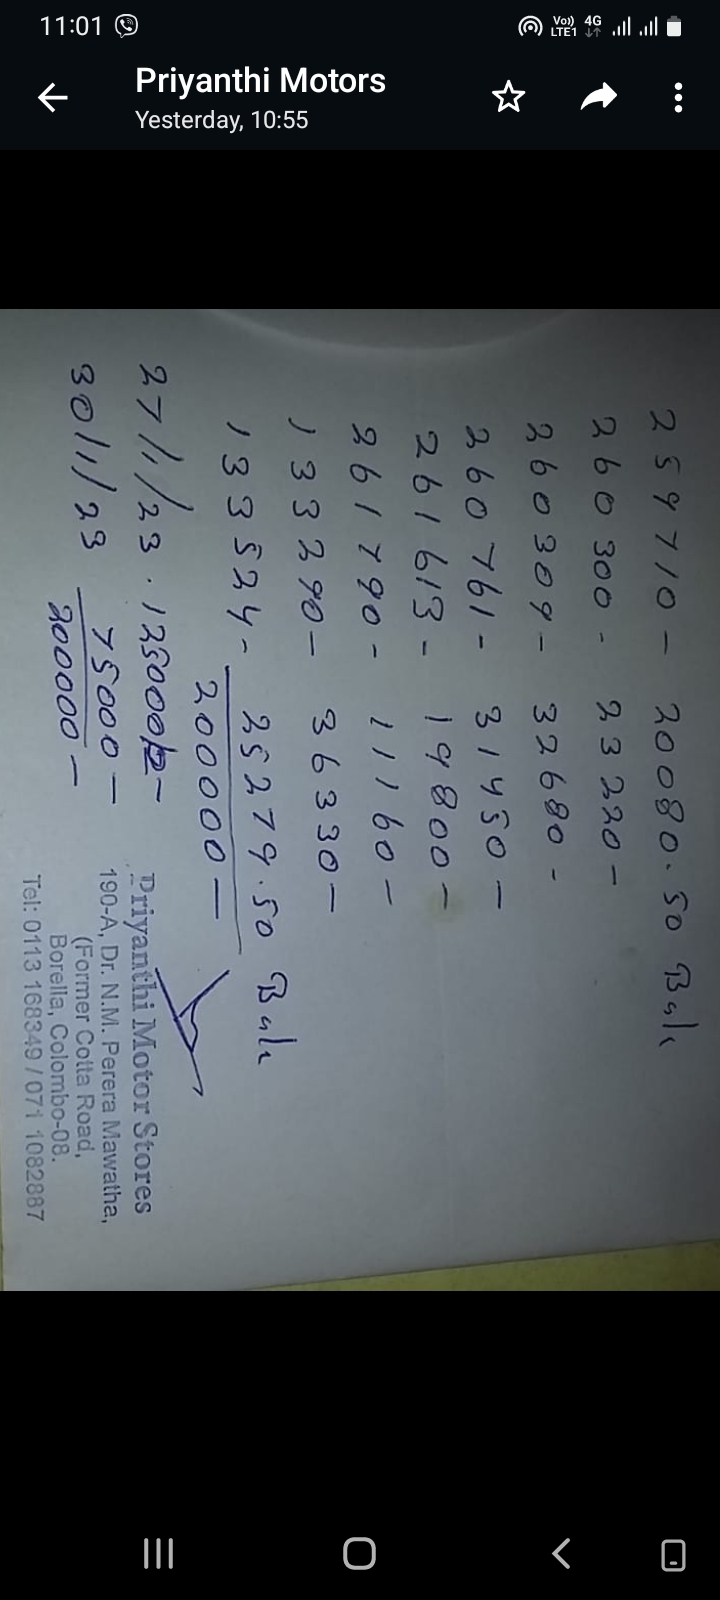 11:01
Vo)) LTE1 4G
Priyanthi Motors
Yesterday, 10:55
259710 - 20080.50 Bale
260300 - 23220 -
260309 - 32680 -
260761 - 31450 -
261613 - 19800 -
261790 - 11160 -
133290 - 36330 -
133524 - 25279.50 Bale
200000 -
27/1/23. 125000 -
30/1/23 75000 -
200000 -
Priyanthi Motor Stores
190-A, Dr. N.M. Perera Mawatha,
(Former Cotta Road,
Borella, Colombo-08.
Tel: 0113 168349 / 071 1082887